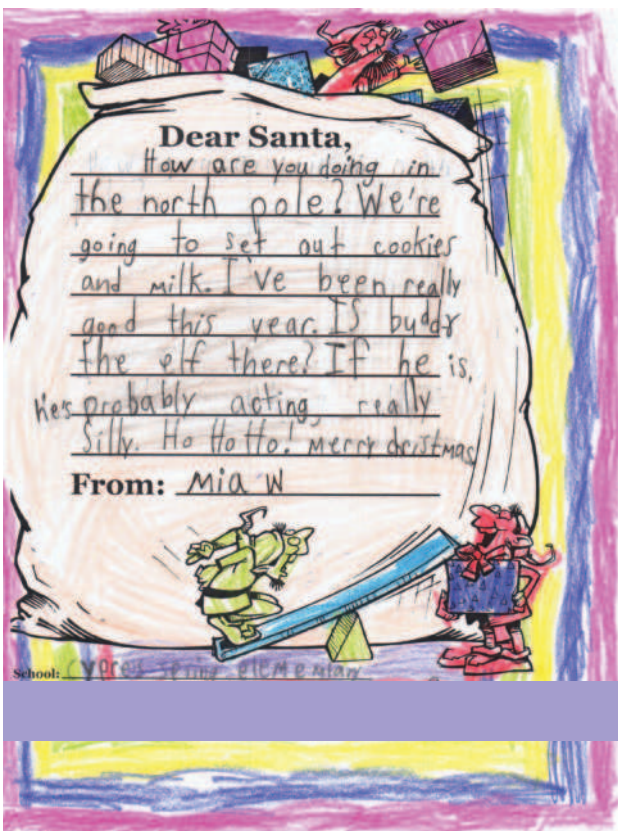 Dear Santa,
How are you doing in
the north pole? We're
going to set out cookies
and milk. I've been really
good this year. IS buddy
the elf there? If he is,
he's probably acting really
Silly. Ho Ho Ho! merry dristmas
From: Mia W
School: Cypres spring elementary